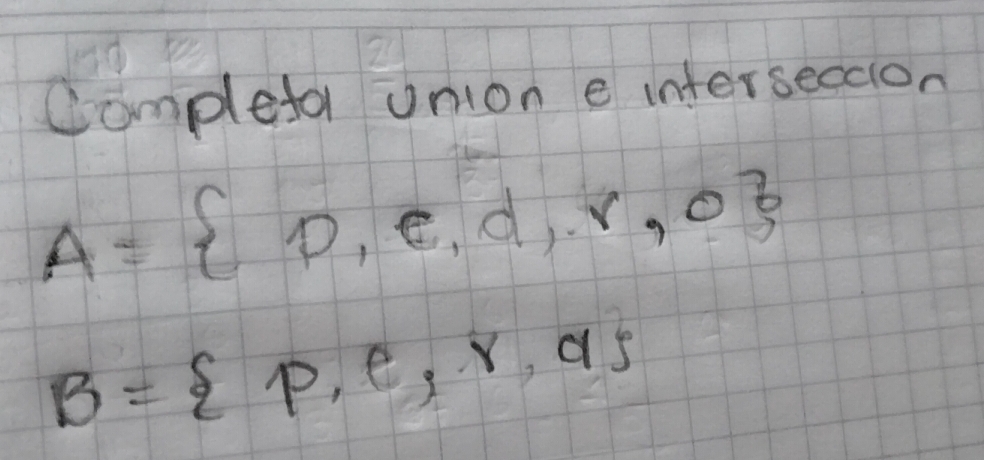 Completa union e interseccion
A = { p, e, d, r, o }
B = { p, e, r, a }